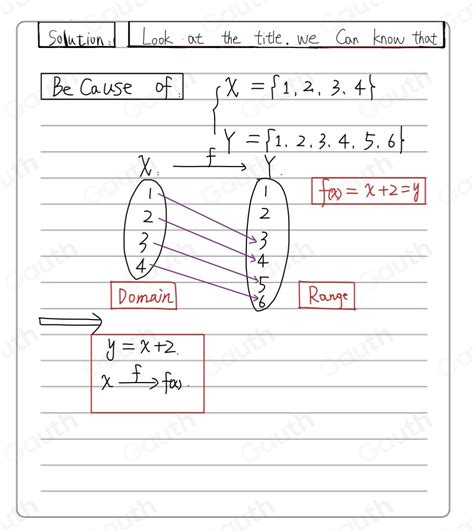 Solution: Look at the title. we Can know that
Be Cause of: X = {1, 2, 3, 4}
Y = {1, 2, 3, 4, 5, 6}
X f Y
f(x) = x+2=y
1 1
2 2
3 3
4 4
5
6
Domain Range
y = x+2.
x f f(x).
Gauth